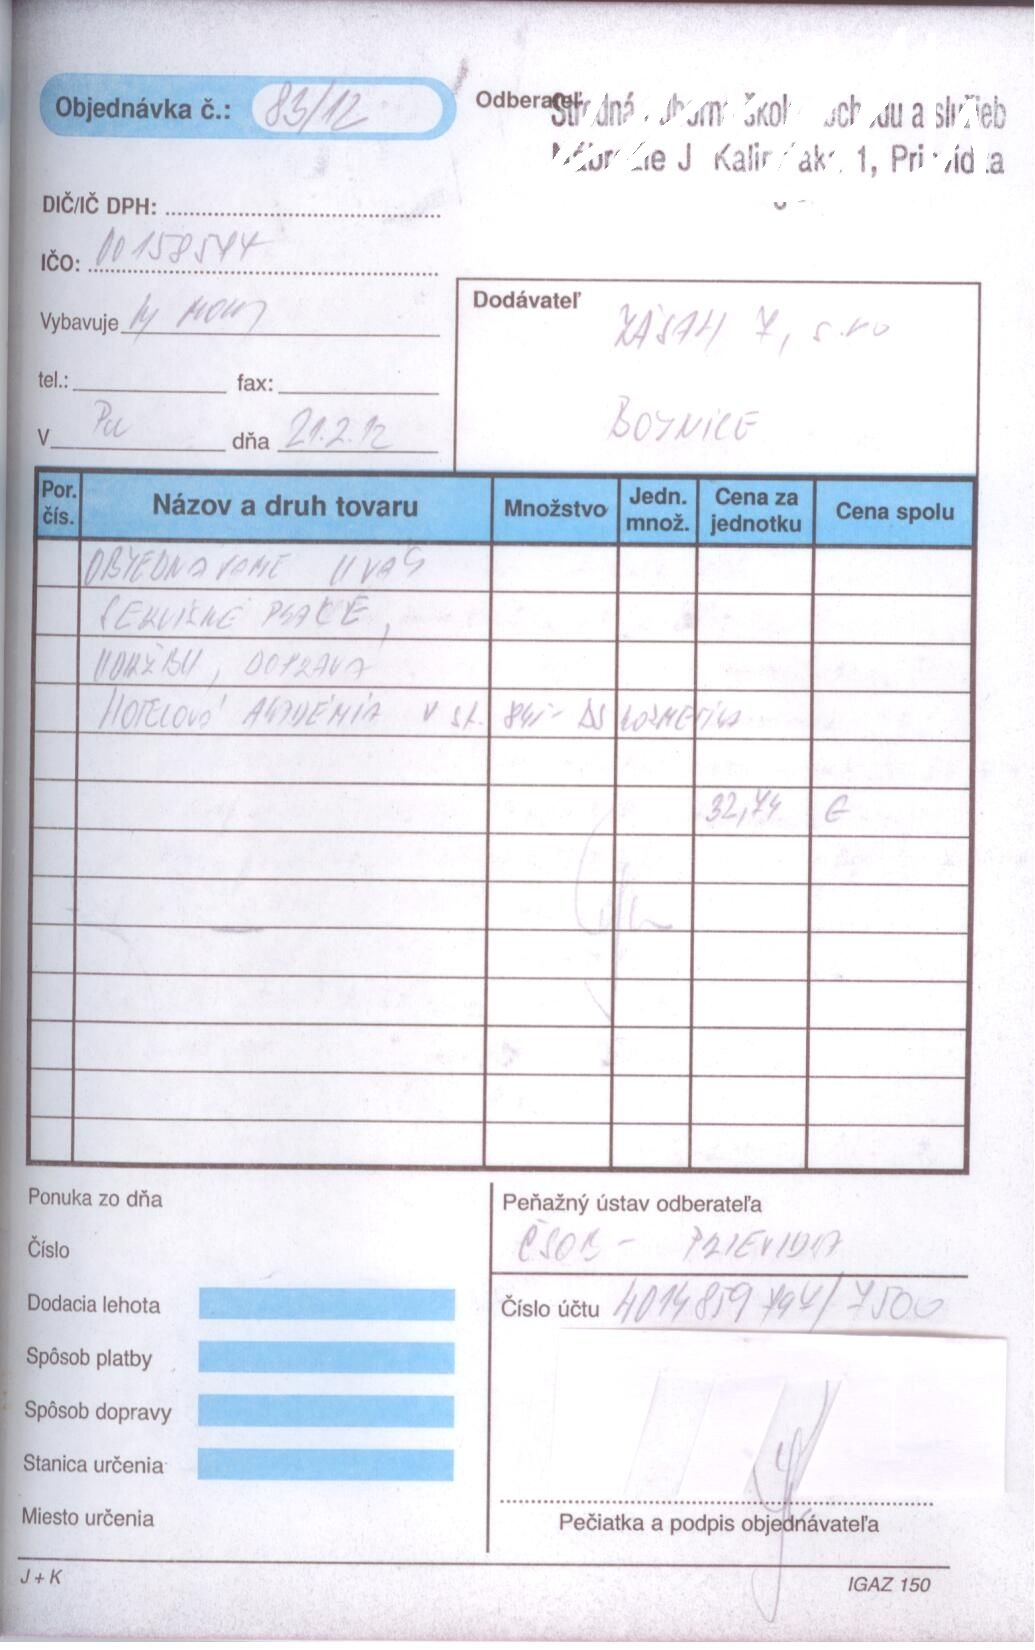 Objednávka č.: 83/12
Odberateľ
Stredná odborná škola obchodu a služieb
Nábrežie J. Kalinčiaka 1, Prievidza
DIČ/IČ DPH:
IČO: 00158577
Vybavuje
tel.: fax:
V Pu dňa 21.2.12
Dodávateľ
ZÁSAH 7, s.r.o
BOJNICE
Por. čís. Názov a druh tovaru Množstvo Jedn. množ. Cena za jednotku Cena spolu
OBJEDNÁVAME U VÁS
SERVISNÉ PRÁCE,
ÚDRŽBU, DOPRAVA
HOTELOVÁ AKADÉMIA V ST. KOZMETIKA
32,74 €
Ponuka zo dňa
Číslo
Dodacia lehota
Spôsob platby
Spôsob dopravy
Stanica určenia
Miesto určenia
Peňažný ústav odberateľa
ČSOB - PRIEVIDZA
Číslo účtu /7500
Pečiatka a podpis objednávateľa
J + K
IGAZ 150